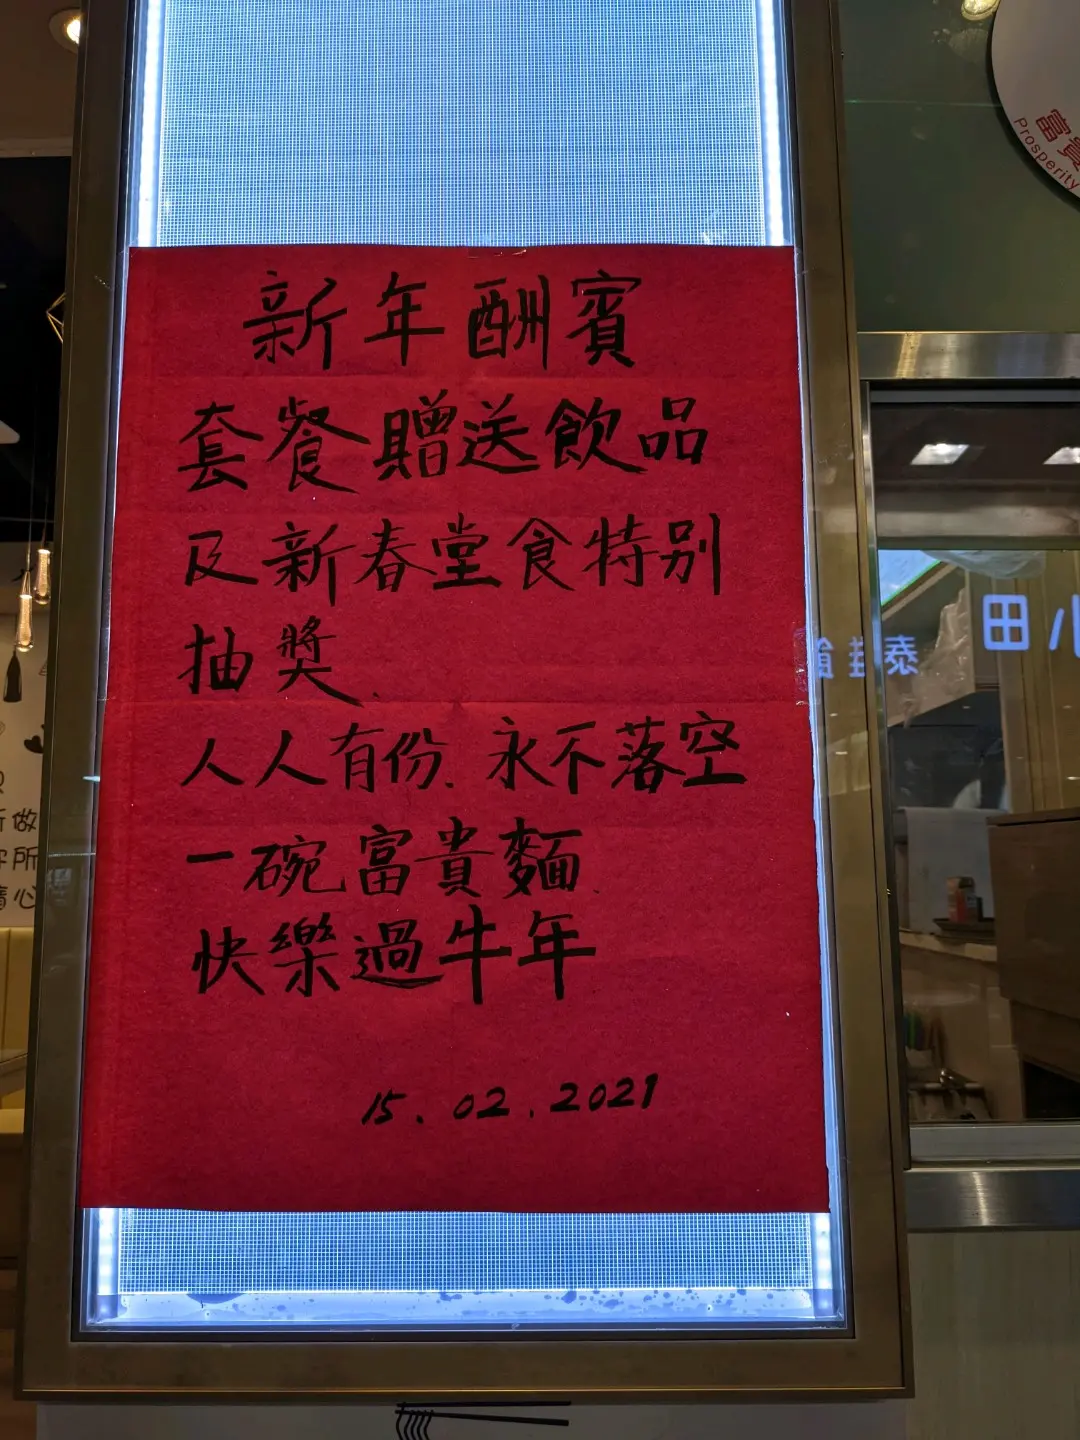 新年酬賓
套餐贈送飲品
及新春堂食特别
抽獎.
人人有份.永不落空
一碗富貴麵.
快樂過牛年
15.02.2021
富貴
Prosperity
田心
做
所
心